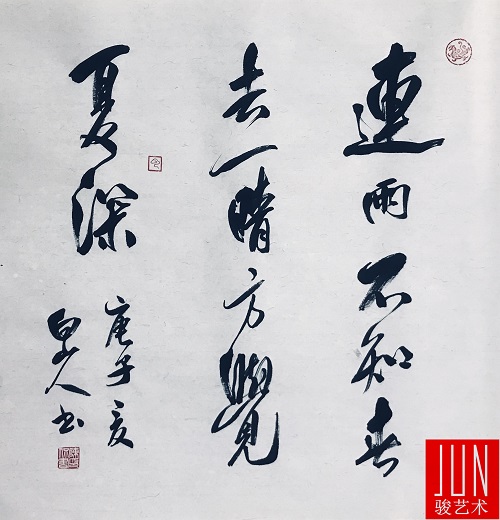 連雨不知春
去一晴方覺
夏深
庚子夏
白山人书
JUN
骏艺术